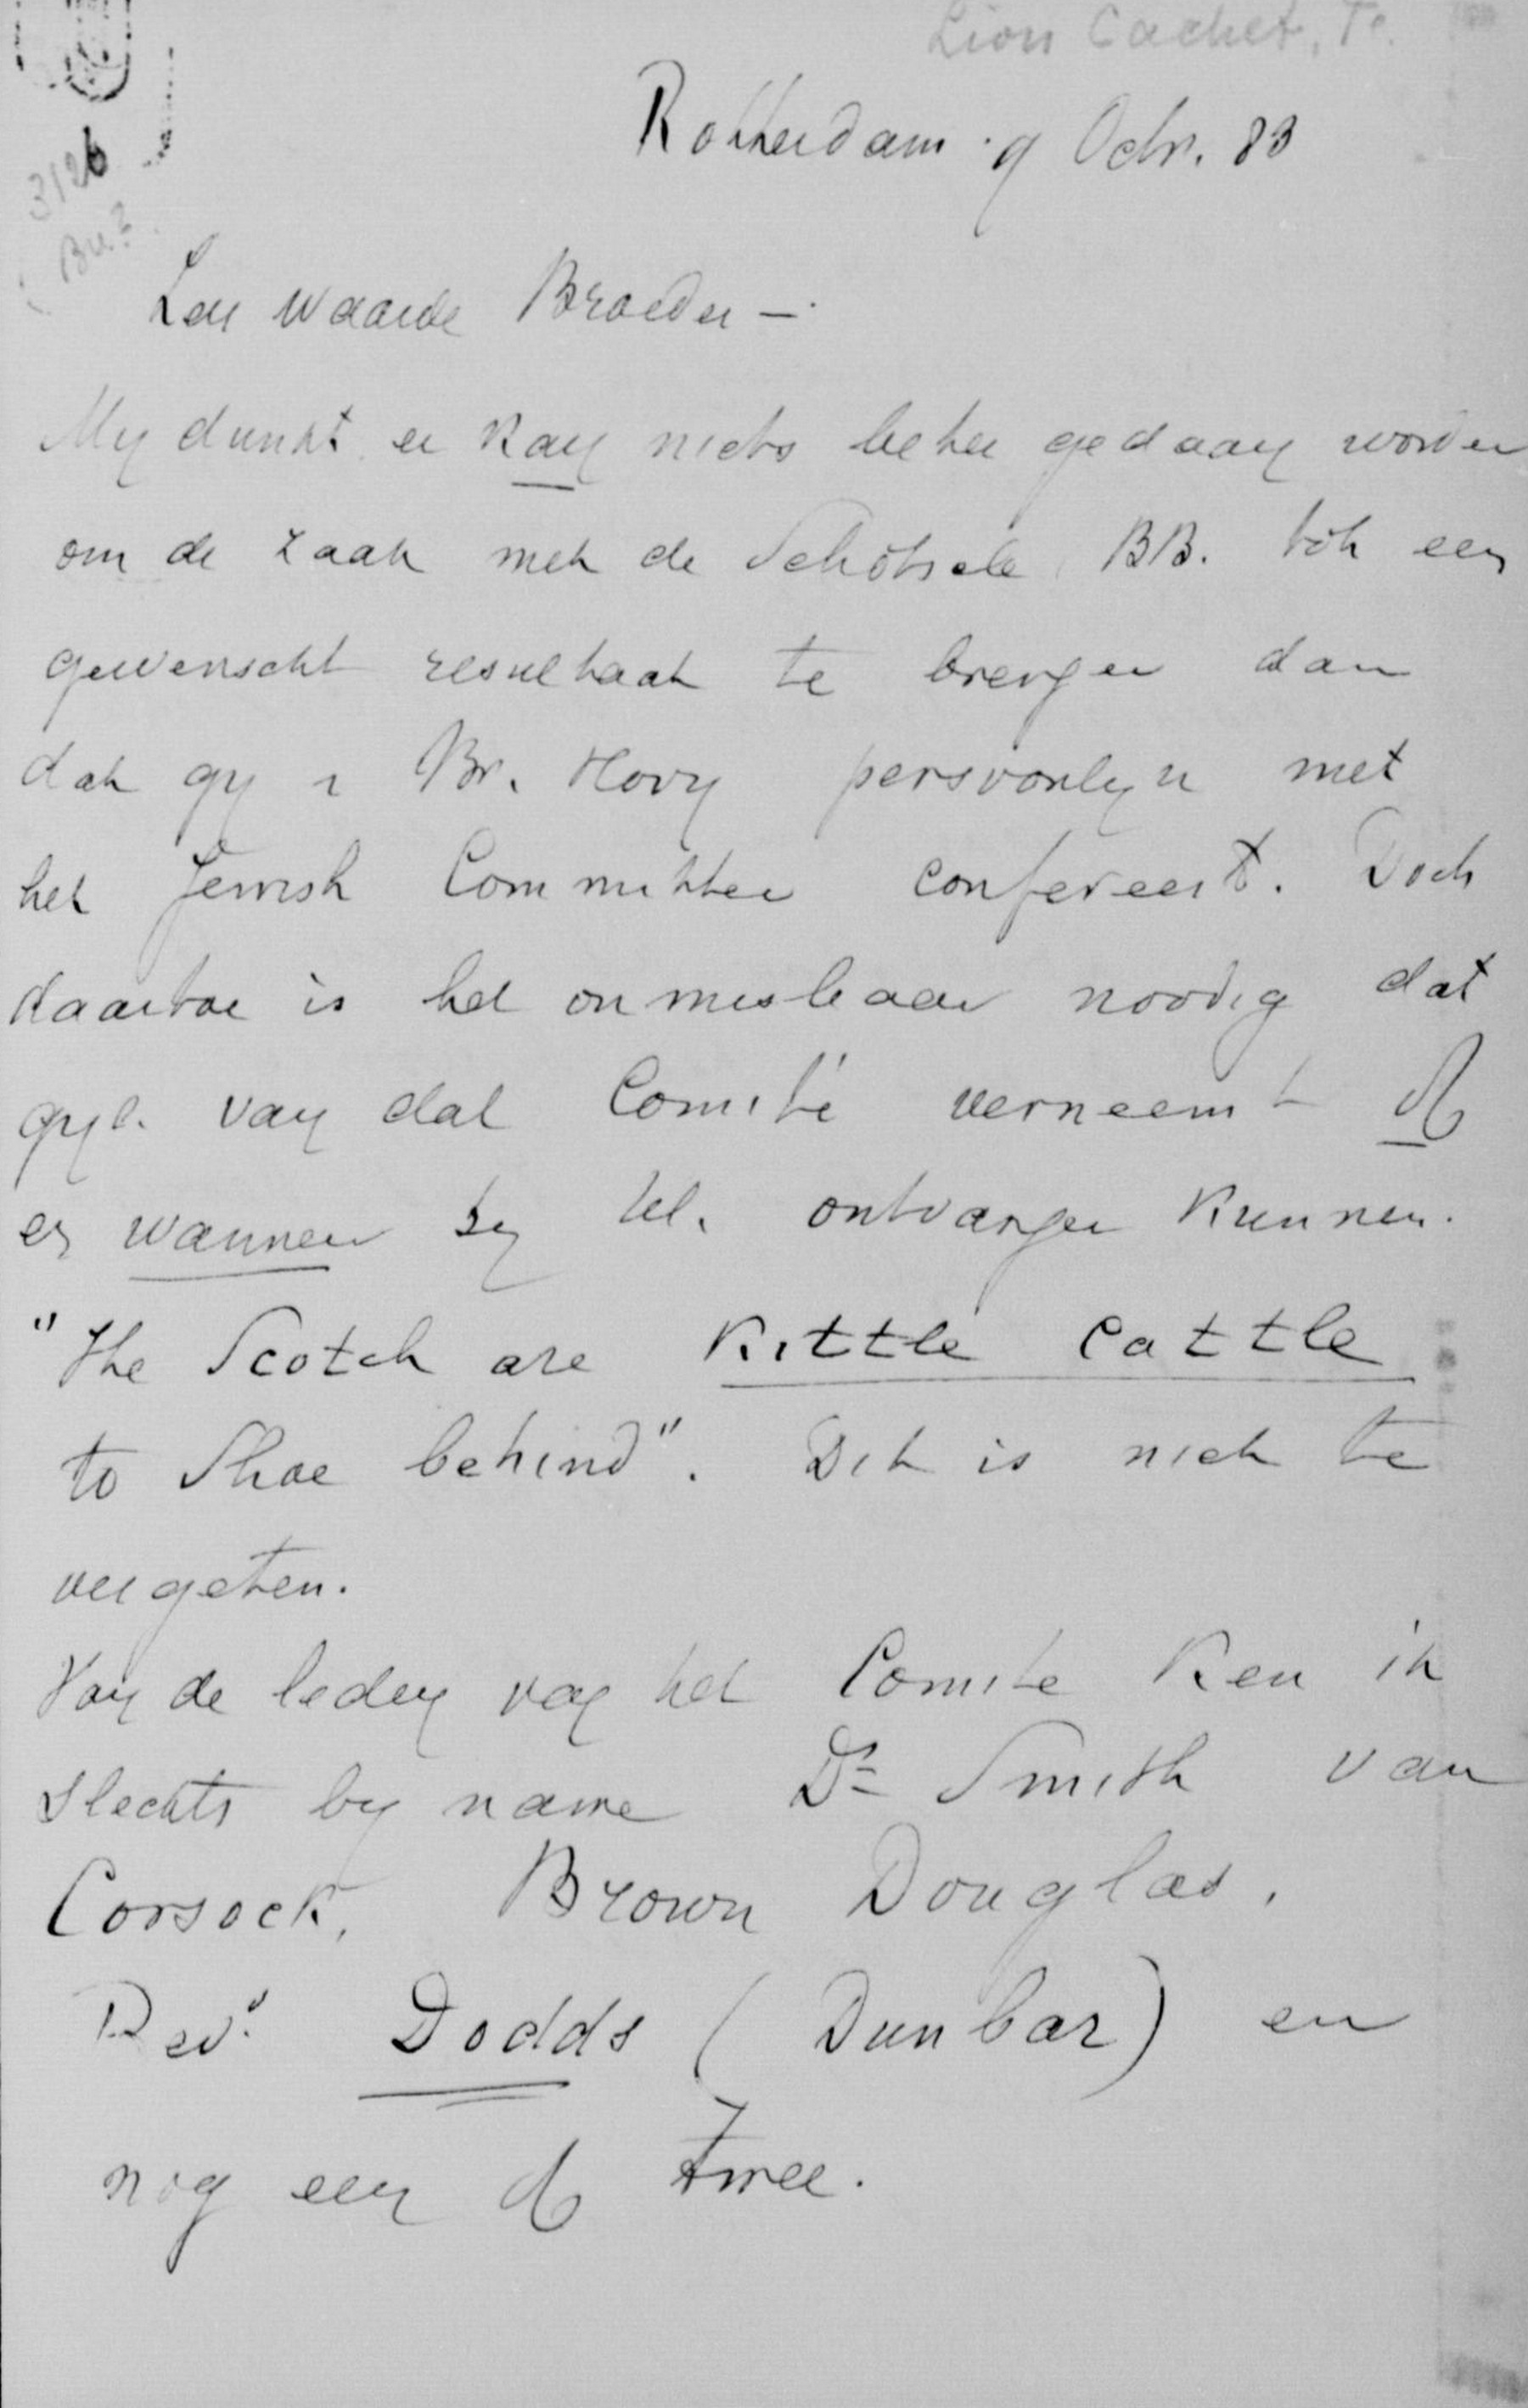 Lion Cachet, F.
Rotterdam 9 Octr. 83
3126
Br.?
Zeer waarde Broeder —
Mij dunkt er kan niets beter gedaan worden
om de zaak met de Schotsche BB. tot een
gewenscht resultaat te brengen dan
dat gij & Br. Hovy persoonlijk met
het Jewish Committee confereert. Doch
daartoe is het onmisbaar noodig dat
gijl. van dat Comité verneemt of
en wanneer zij Ul. ontvangen kunnen.
"The Scotch are kittle cattle
to shoe behind". Dit is niet te
vergeten.
Van de leden van het Comite ken ik
slechts bij name Dr Smith van
Corsock, Brown Douglas,
Revd. Dodds (Dunbar) en
nog een of twee.